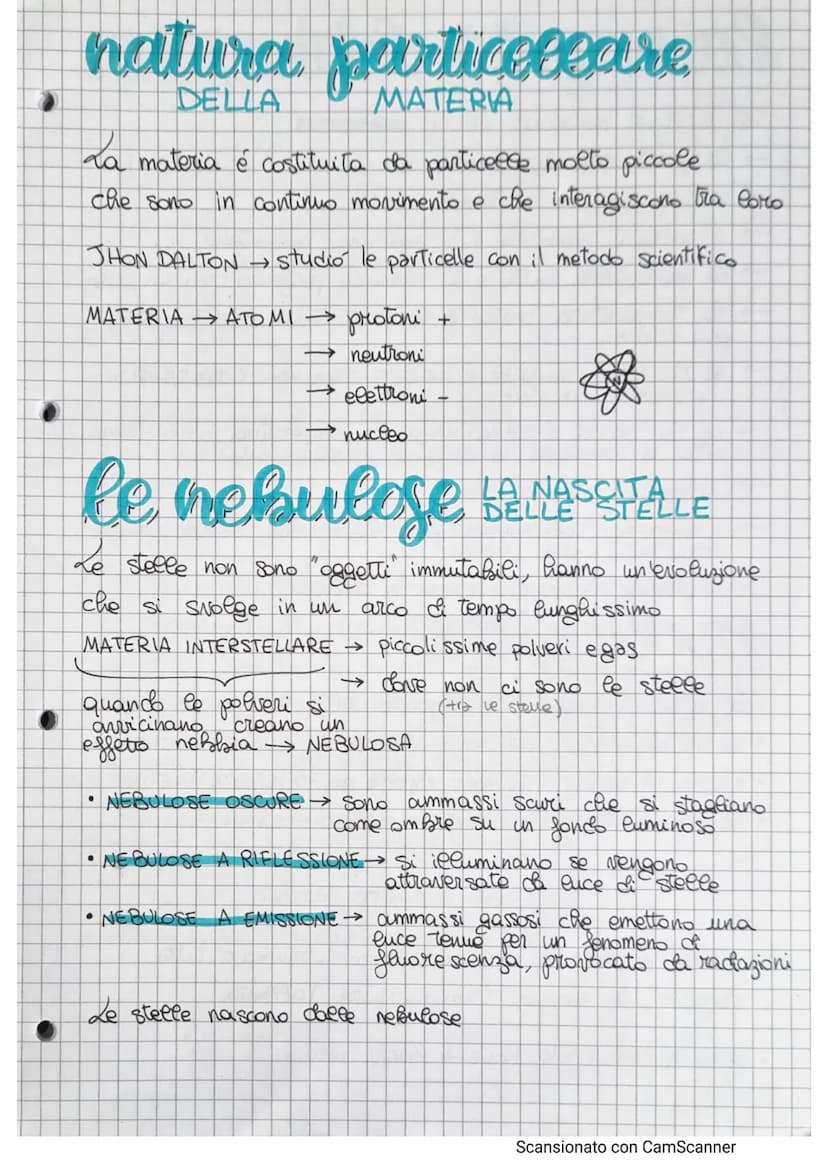 natura particellare
DELLA MATERIA
La materia é costituita da particelle molto piccole
che sono in continuo movimento e che interagiscono tra loro
JHON DALTON → studió le particelle con il metodo scientifico
MATERIA → ATOMI → protoni +
→ neutroni
→ elettroni -
→ nucleo
N
le nebulose LA NASCITA
DELLE STELLE
Le stelle non sono "oggetti" immutabili, hanno un'evoluzione
che si svolge in un arco di tempo lunghissimo
MATERIA INTERSTELLARE → piccolissime polveri e gas
→ dove non ci sono le stelle
(tra le stelle)
quando le polveri si
avvicinano creano un
effeto nebbia → NEBULOSA
• NEBULOSE OSCURE → sono ammassi scuri che si stagliano
come ombre su un fondo luminoso
• NEBULOSE A RIFLESSIONE → si illuminano se vengono
attraversate da luce di stelle
• NEBULOSE A EMISSIONE → ammassi gassosi che emettono una
luce tenue per un fenomeno di
fluorescenza, provocato da radiazioni
Le stelle nascono dalle nebulose
Scansionato con CamScanner